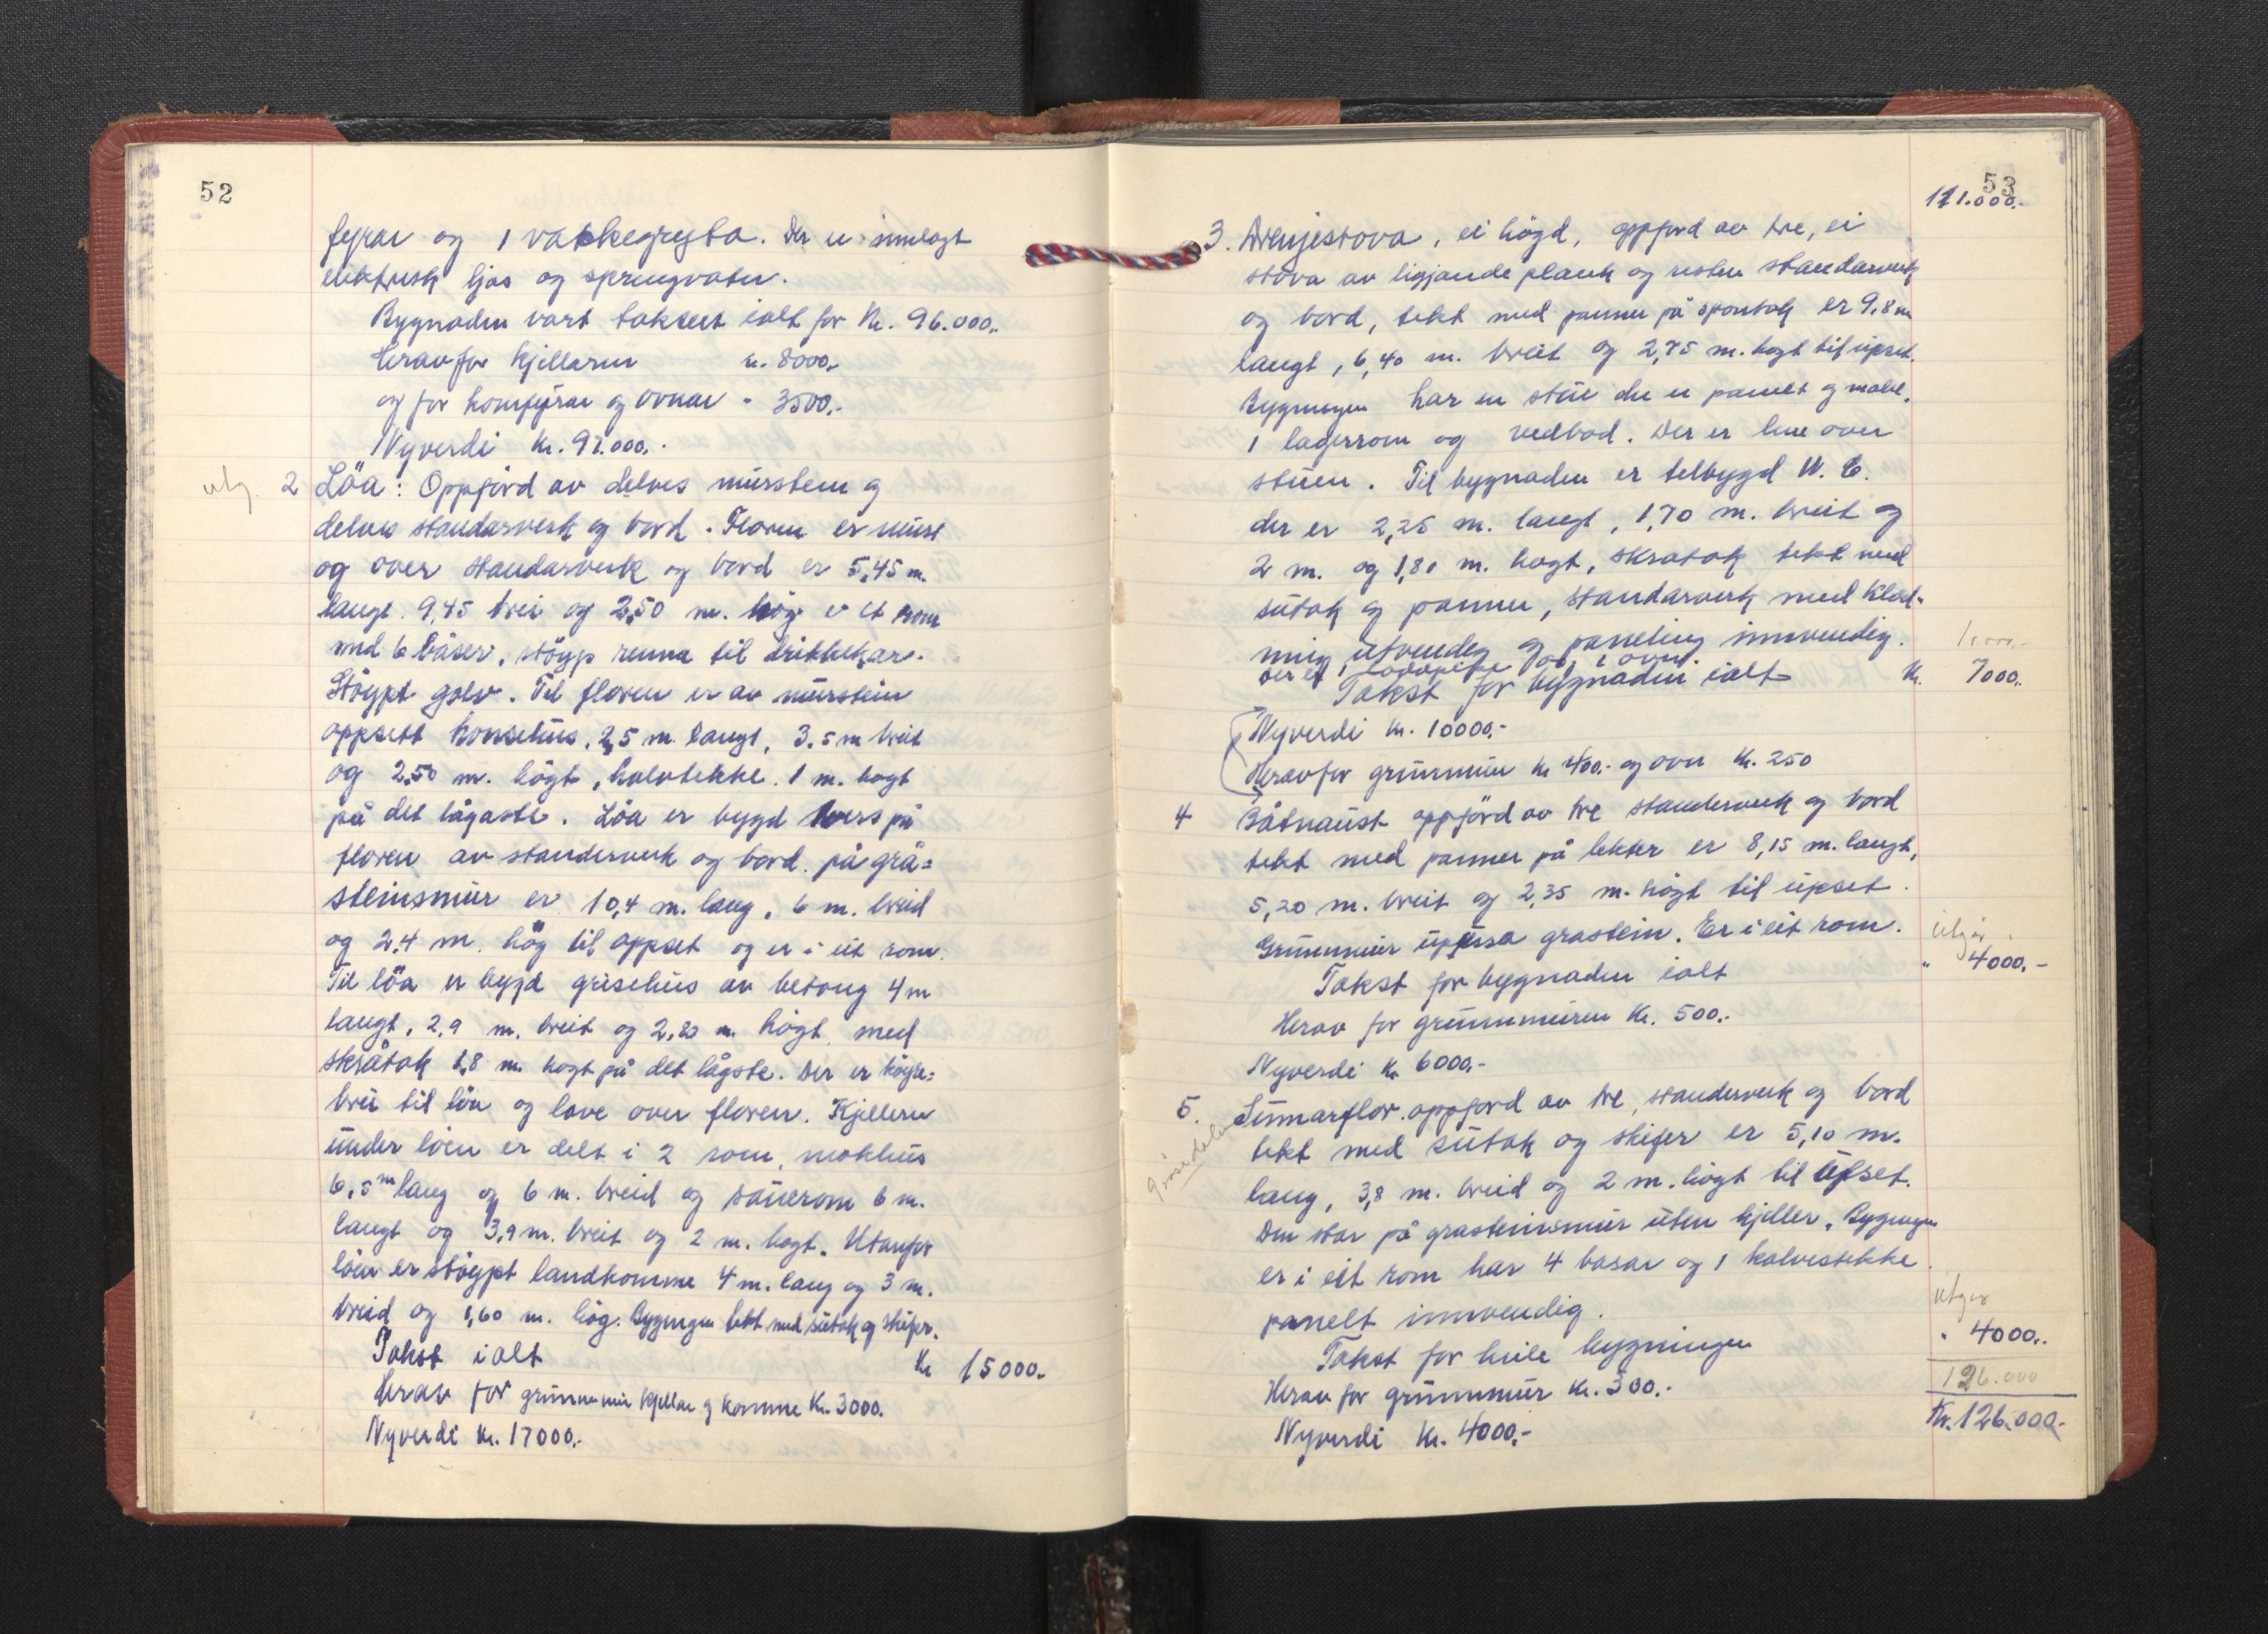 52
fyrar og 1 vaskegryta. Der er innlagt
elektrisk ljos og springvatn.
Bygnaden vart taksert ialt for Kr. 96.000.-
Herav for kjellaren kr. 8000.-
og for komfyrar og ovnar " 3500.-
Nyverdi kr. 97.000.-
utg. 2 Löa: Oppförd av delvis murstein og
delvis standarverk og bord. Floren er mura
og over standarverk og bord er 5,45 m.
langt. 9,45 brei og 2,50 m. høg er et rom
med 6 båser, støyp renne til drikkekar.
Støypt golv. Til floren er av murstein
oppsett honsehus, 2,5 m. langt, 3,5 m breit
og 2,50 m. högt, halvtekke. 1 m. hogt
på det lågaste. Löa er bygd tvers på
floren av standerverk og bord. på grå=
steinsmur er 10,4 m. lang, 6 m. breid
og 2,4 m. høg til oppset og er i eit rom.
Til löa er bygd grisehus av betong 4 m
langt, 2,9 m. breit og 2,20 m. högt, med
skråtak 1,8 m. hogt på det lågste. Der er köyre=
bru til löa og lave over floren. Kjelleren
under löen er delt i 2 rom, mokhus
6,5 m lang og 6 m. breid og sauerom 6 m.
langt og 3,9 m. breit og 2 m. hogt. Utanfor
löen er støypt landkomme 4 m. lang og 3 m.
breid og 1,60 m. høg. Bygningen tekt med sutak og skifer.
Takst ialt Kr 15000.-
Herav for grunnmur kjellar og komme Kr. 3000.
Nyverdi kr. 17000.-
53
111.000.-
3. Drengjestova, ei högd, oppførd av tre, ei
stova av ligjande plank og resten standarverk
og bord, tekt med panner på spontak er 9,8 m
langt, 6,40 m. breit og 2,75 m. hogt til upset.
Bygningen har en stue der er panelt og malt.
1 lagerrom og vedbod. Der er lem over
stuen. Til bygnaden er telbygd W. C.
der er 2,25 m. langt, 1,70 m. breit og
2 m. og 1,80 m. hogt, skratak tekt med
sutak og panner, standarverk med kled-
ning utvendig og paneling innvendig.
Der er 1 og 1 ovn.
Takst for bygnaden ialt Kr. 7000.-
Nyverdi kr. 10000.-
Herav for grunnmur kr 400.- og ovn Kr. 250
4 Båtnaust oppförd av tre standerverk og bord
tekt med panner på lekter er 8,15 m. langt,
5,20 m. breit og 2,35 m. högt til upset.
Grunnmur upussa grastein. Er i eit rom.
utgår
Takst for bygnaden ialt " 4000.-
Herav for grunnmuren Kr. 500.-
Nyverdi kr 6000.-
5. Sumarflor. oppførd av tre, standerverk og bord
tekt med sutak og skifer er 5,10 m.
lang, 3,8 m. breid og 2 m. högt til upset.
Den star på grasteinsmur uten kjeller. Bygningen
er i eit rom har 4 basar og 1 kalvestekke
panelt innvendig.
utgår
Takst for heile bygningen " 4000.-
126.000
Herav for grunnmur kr. 300.-
Kr. 126.000.-
Nyverdi kr. 4000.-